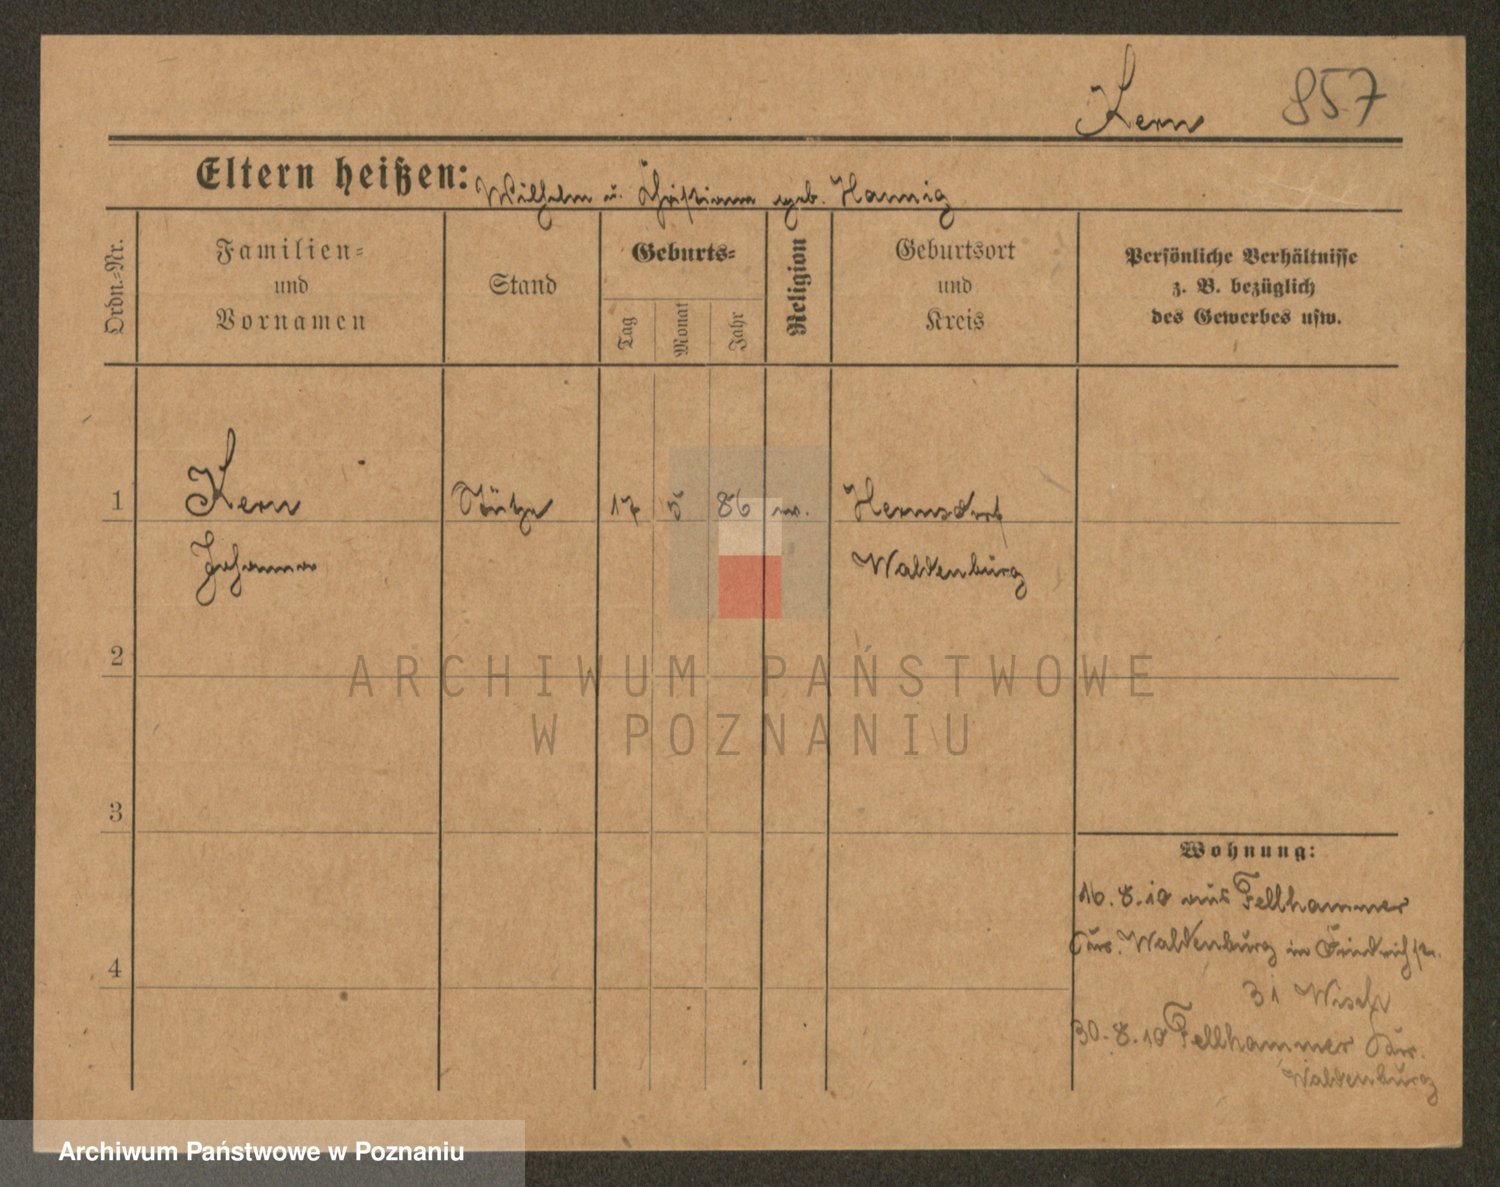 Kern 857
Eltern heißen: Wilhelm u. Christiane geb. Hannig
Ordn.-Nr.
Familien-
und
Vornamen
Stand
Geburts-
Tag
Monat
Jahr
Religion
Geburtsort
und
Kreis
Persönliche Verhältnisse
z. B. bezüglich
des Gewerbes usw.
1 Kern Stütze 17 5 86 ev. Hermsdorf
Johanna Waldenburg
2
ARCHIWUM PAŃSTWOWE
W POZNANIU
3
Wohnung:
16.8.10 aus Fellhammer
Waldenburg in Friedrichstr.
4
31
30.8.10 Fellhammer
Waldenburg
Archiwum Państwowe w Poznaniu